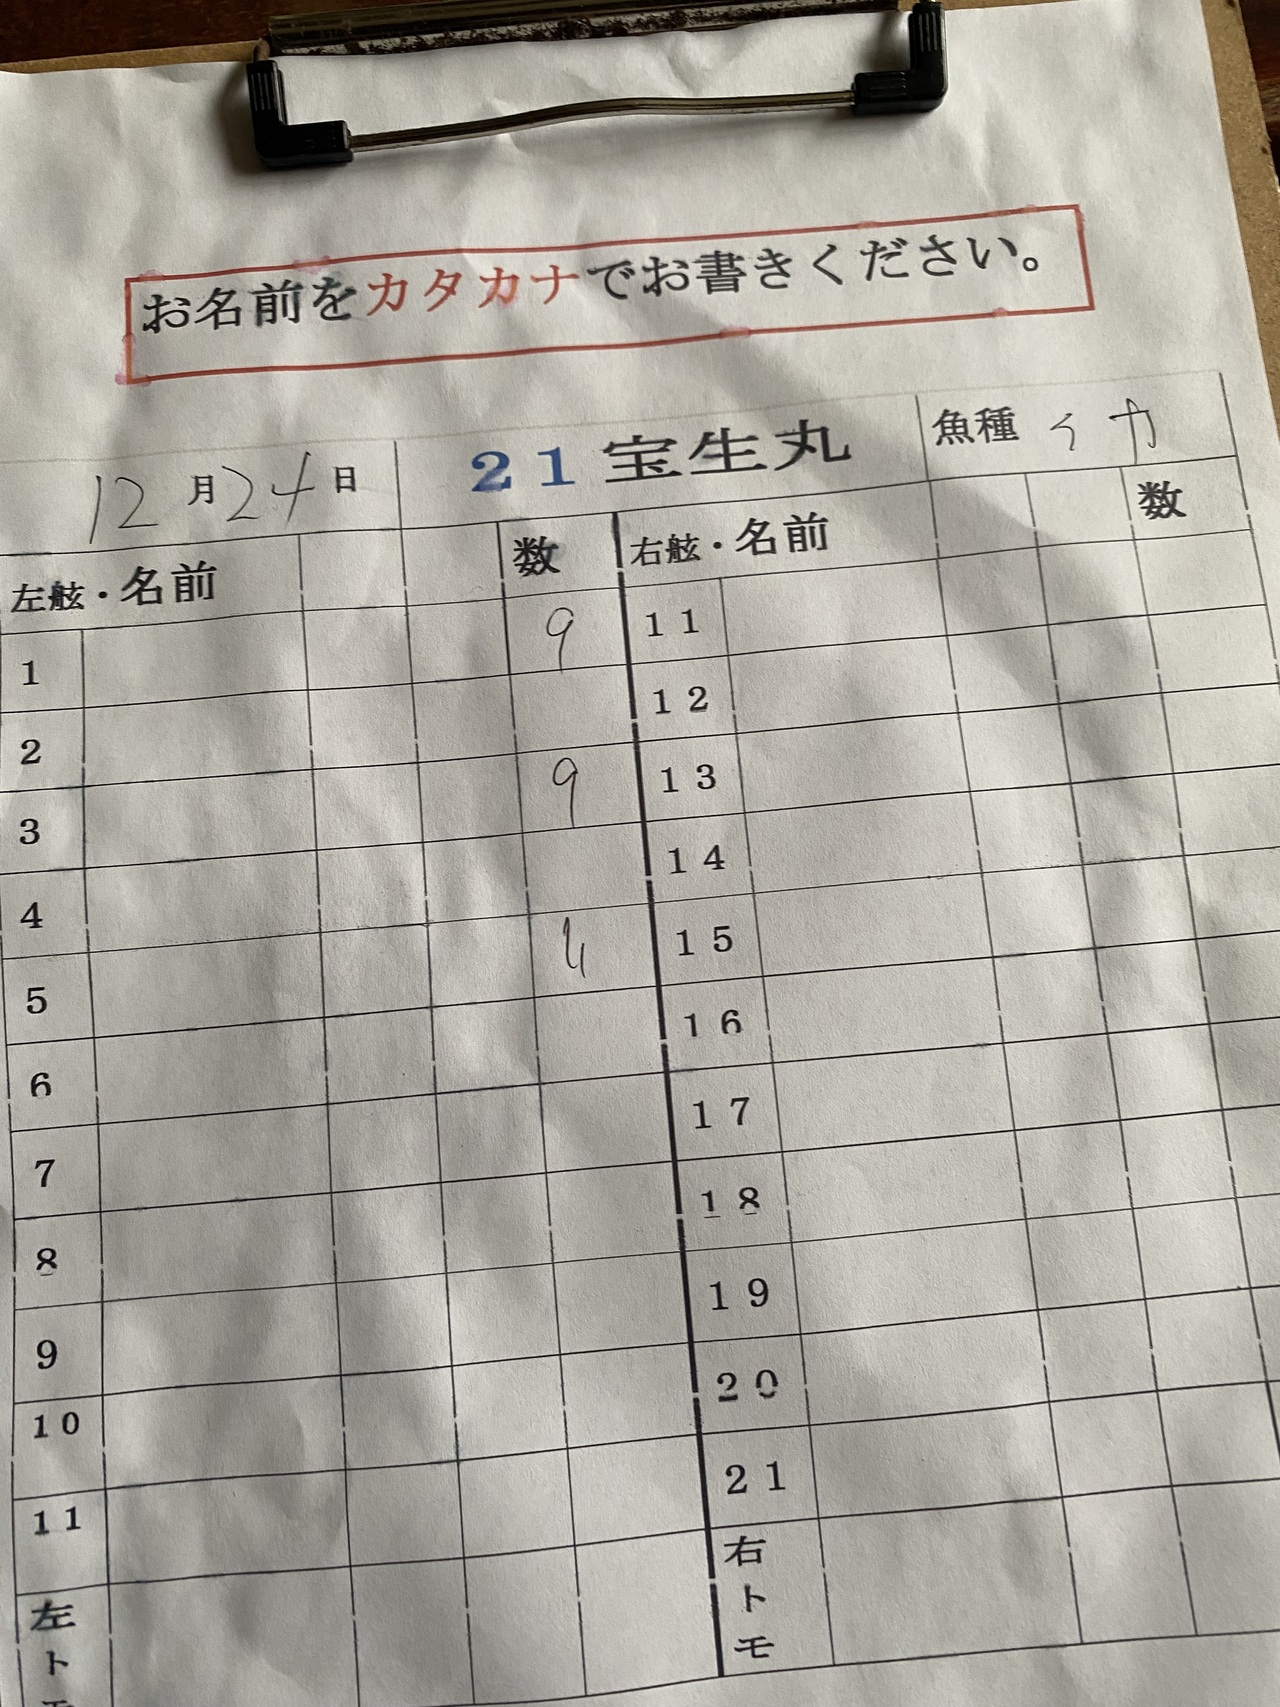 お名前をカタカナでお書きください。
12月24日 21宝生丸 魚種 イカ
左舷・名前 数 右舷・名前 数
1 9 11
2 12
3 9 13
4 14
5 4 15
6 16
7 17
8 18
9 19
10 20
11 21
左トモ 右トモ